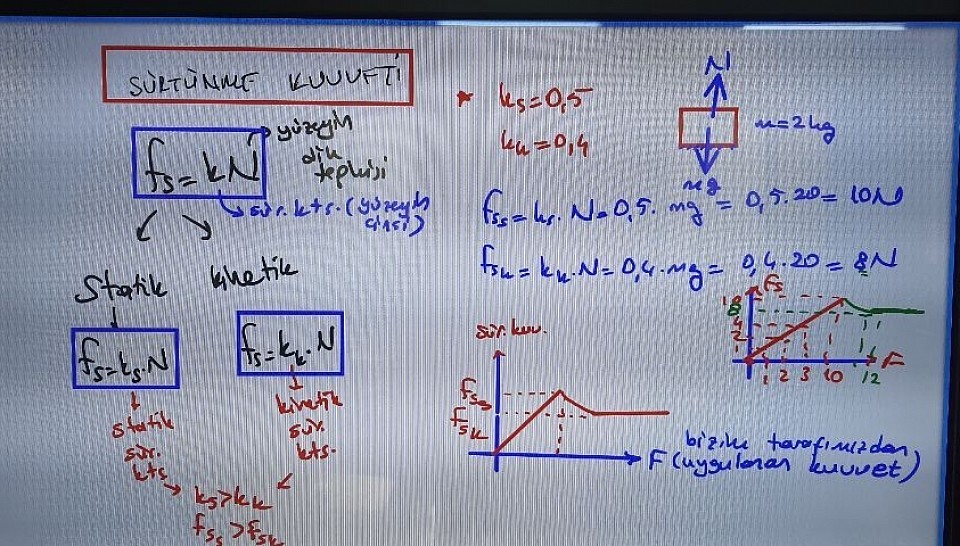 SÜRTÜNME KUVVETİ
fs = kN
yüzeyin
dik
tepkisi
sür. kts. (yüzeyin
cinsi)
Statik
kinetik
fs = ks.N
fs = kk.N
statik
sür.
kts
kinetik
sür.
kts.
ks > kk
fss > fsk
* ks = 0,5
kk = 0,4
N
m = 2kg
mg
fss = ks. N = 0,5. mg = 0,5.20 = 10N
fsk = kk.N = 0,4.mg = 0,4.20 = 8N
sür. kuv.
fss
fsk
F (uygulanan kuvvet)
bizim tarafımızdan
fs
10
8
4
2
1 2 3 10 12 F